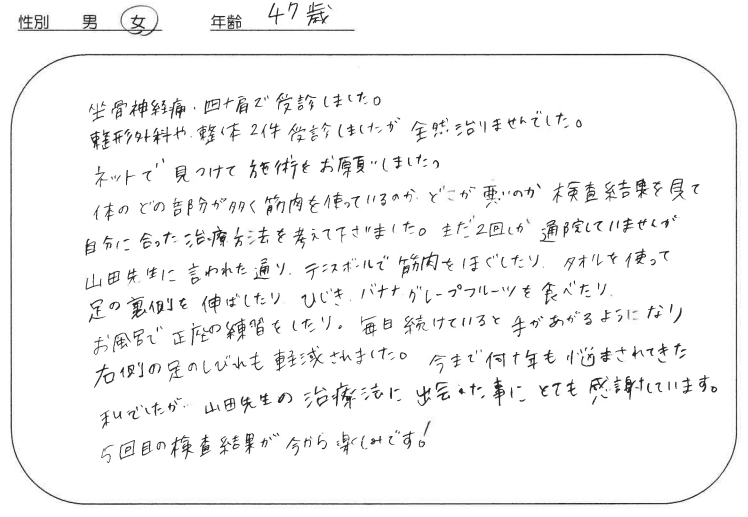 性別 男 女 年齢 47歳
坐骨神経痛・四十肩で受診しました。
整形外科や整体2件受診しましたが全然治りませんでした。
ネットで見つけて施術をお願いしました。
体のどの部分が多く筋肉を使っているのか どこが悪いのか 検査結果を見て
自分に合った治療方法を考えて下さいました。まだ2回しか通院していませんが
山田先生に言われた通り、テニスボールで筋肉をほぐしたり、タオルを使って
足の裏側を伸ばしたり ひじき、バナナ グレープフルーツを食べたり、
お風呂で正座の練習をしたり。毎日続けていると手があがるようになり
右側の足のしびれも軽減されました。今まで何十年も悩まされてきた
私でしたが、山田先生の治療法に出会えた事にとても感謝しています。
5回目の検査結果が今から楽しみです!